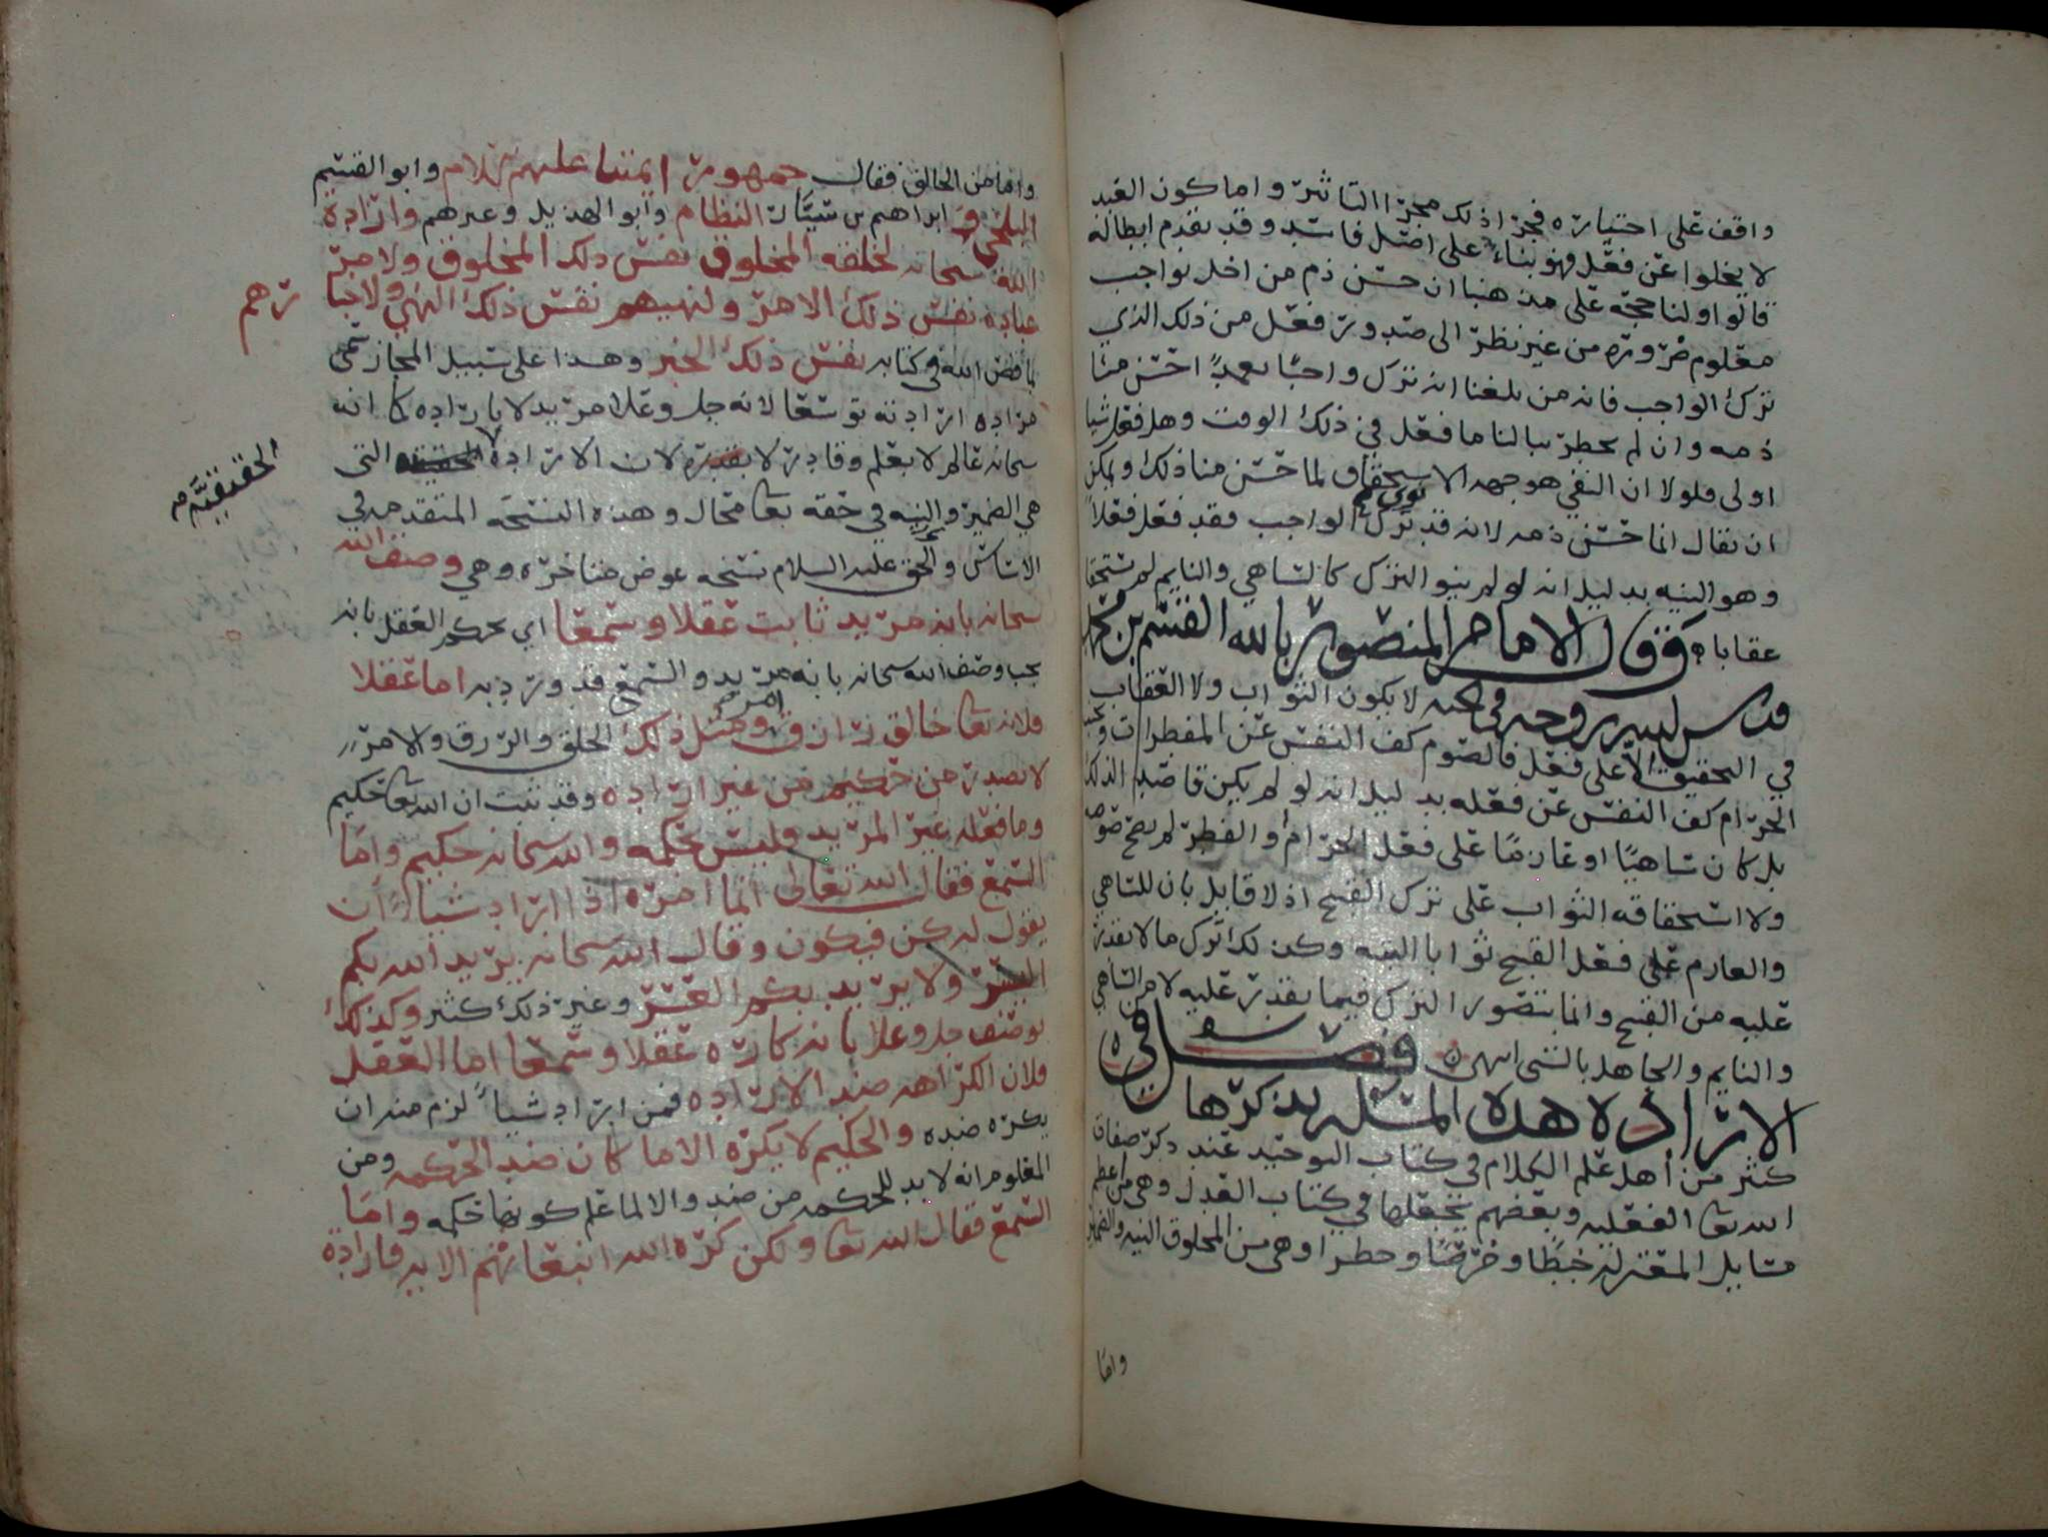 واقف على اختياره فجزا ذلك مجزا التاثير واما كون العبد
لا يخلوا عن فعل فهو بناء على اصل فاسد وقد تقدم ابطاله
قالوا ولنا حجه على مذهبنا ان حسن ذم من اخل بواجب
معلوم ضروره من غير نظر الى صدور فعل من ذلك الذي
ترك الواجب فانه من بلغنا انه ترك واجبًا تعمدًا احسن منا
ذمه وان لم يخطر ببالنا ما فعل في ذلك الوقت وهل فعل شيا
اولى فلولا ان النفي هو جهه الاستحقاق لما حسن منا ذلك ويمكن
ان يقال انما حسن ذمه لانه قد نوى ترك الواجب فقد فعل فعلًا
وهو النيه بدليل انه لو لم ينو الترك كالساهي والنايم لم يستحق
عقابا وقال الامام المنصور بالله القسم بن محمد
قدس الله روحه في الجنه لا يكون الثواب ولا العقاب
في التحقيق الا على فعل فالصوم كف النفس عن المفطرات وتجنب
الحرام كف النفس عن فعله بدليل انه لو لم يكن قاصدا لذلك
بل كان ساهيًا او عازمًا على فعل الحرام او الفطر لم يصح صومه
ولا استحقاقه الثواب على ترك القبيح اذ لا قايل بان للساهي
والعازم على فعل القبيح ثوابا البته وكذلك ترك ما لا يقدر
عليه من القبيح وانما يتصور الترك فيما يقدر عليه لا من الساهي
والنايم والجاهل بالشي انتهى فصل في
الارادة هذه المسئله يذكرها
كثير من اهل علم الكلام في كتاب التوحيد عند ذكر صفات
الله تعا الفعليه وبعضهم يجعلها في كتاب العدل وهي من اعظم
مسايل المعتزله خبطًا وخرصًا وخطرا وهي من المخلوق النيه والضمير
واما
واما من الخالق فقال جمهور ايمتنا عليهم السلام وابو القسم
البلخي و ابراهيم بن سيَّار النظام وابو الهذيل وغيرهم وارادة
الله سبحانه لخلقه المخلوق نفس ذلك المخلوق ولامره
عباده نفس ذلك الامر ولنهيهم نفس ذلك النهي ولاخبا
رهم
بما قص الله في كتابه نفس ذلك الخبر وهذا على سبيل المجاز سمى
مراده ارادته توسعًا لانه جل وعلا مريد لا بارادة كما انه
سبحانه عالم لا بعلم وقادر لا بقدرة لان الارادة التي
الحقيقيَّه صح
هي الضمير والنيه في حقه تعا محال وهذه النسخه المتقدمه في
الاساس والحق عليه السلام نسخه عوض متاخره وهي وصف الله
سبحانه بانه مريد ثابت عقلا وسمعا اي يحكم العقل بانه
يجب وصف الله سبحانه بانه مريد والسمع قد ورد به اما عقلا
فلانه تعا خالق رازق امر ومثل ذلك الخلق والرزق والامر
لا يصدر من حكيم من غير ارادة وقد ثبت ان الله تعا حكيم
وما فعله غير المريد فليس بحكمه والله سبحانه حكيم واما
السمع فقال الله تعالى انما امره اذا اراد شيا ان
يقول له كن فيكون وقال الله سبحانه يريد الله بكم
اليسر ولا يريد بكم العسر وغير ذلك كثير وكذلك
يوصف جل وعلا بانه كاره عقلا وسمعا اما العقل
فلان الكراهه ضد الارادة فمن اراد شيًا لزم منه ان
يكره ضده والحكيم لا يكره الا ما كان ضد الحكمه ومن
المعلوم انه لا بد للحكمه من ضد والا لما علم كونها حكمه واما
السمع فقال الله تعا ولكن كره الله انبعاثهم الايه فارادة